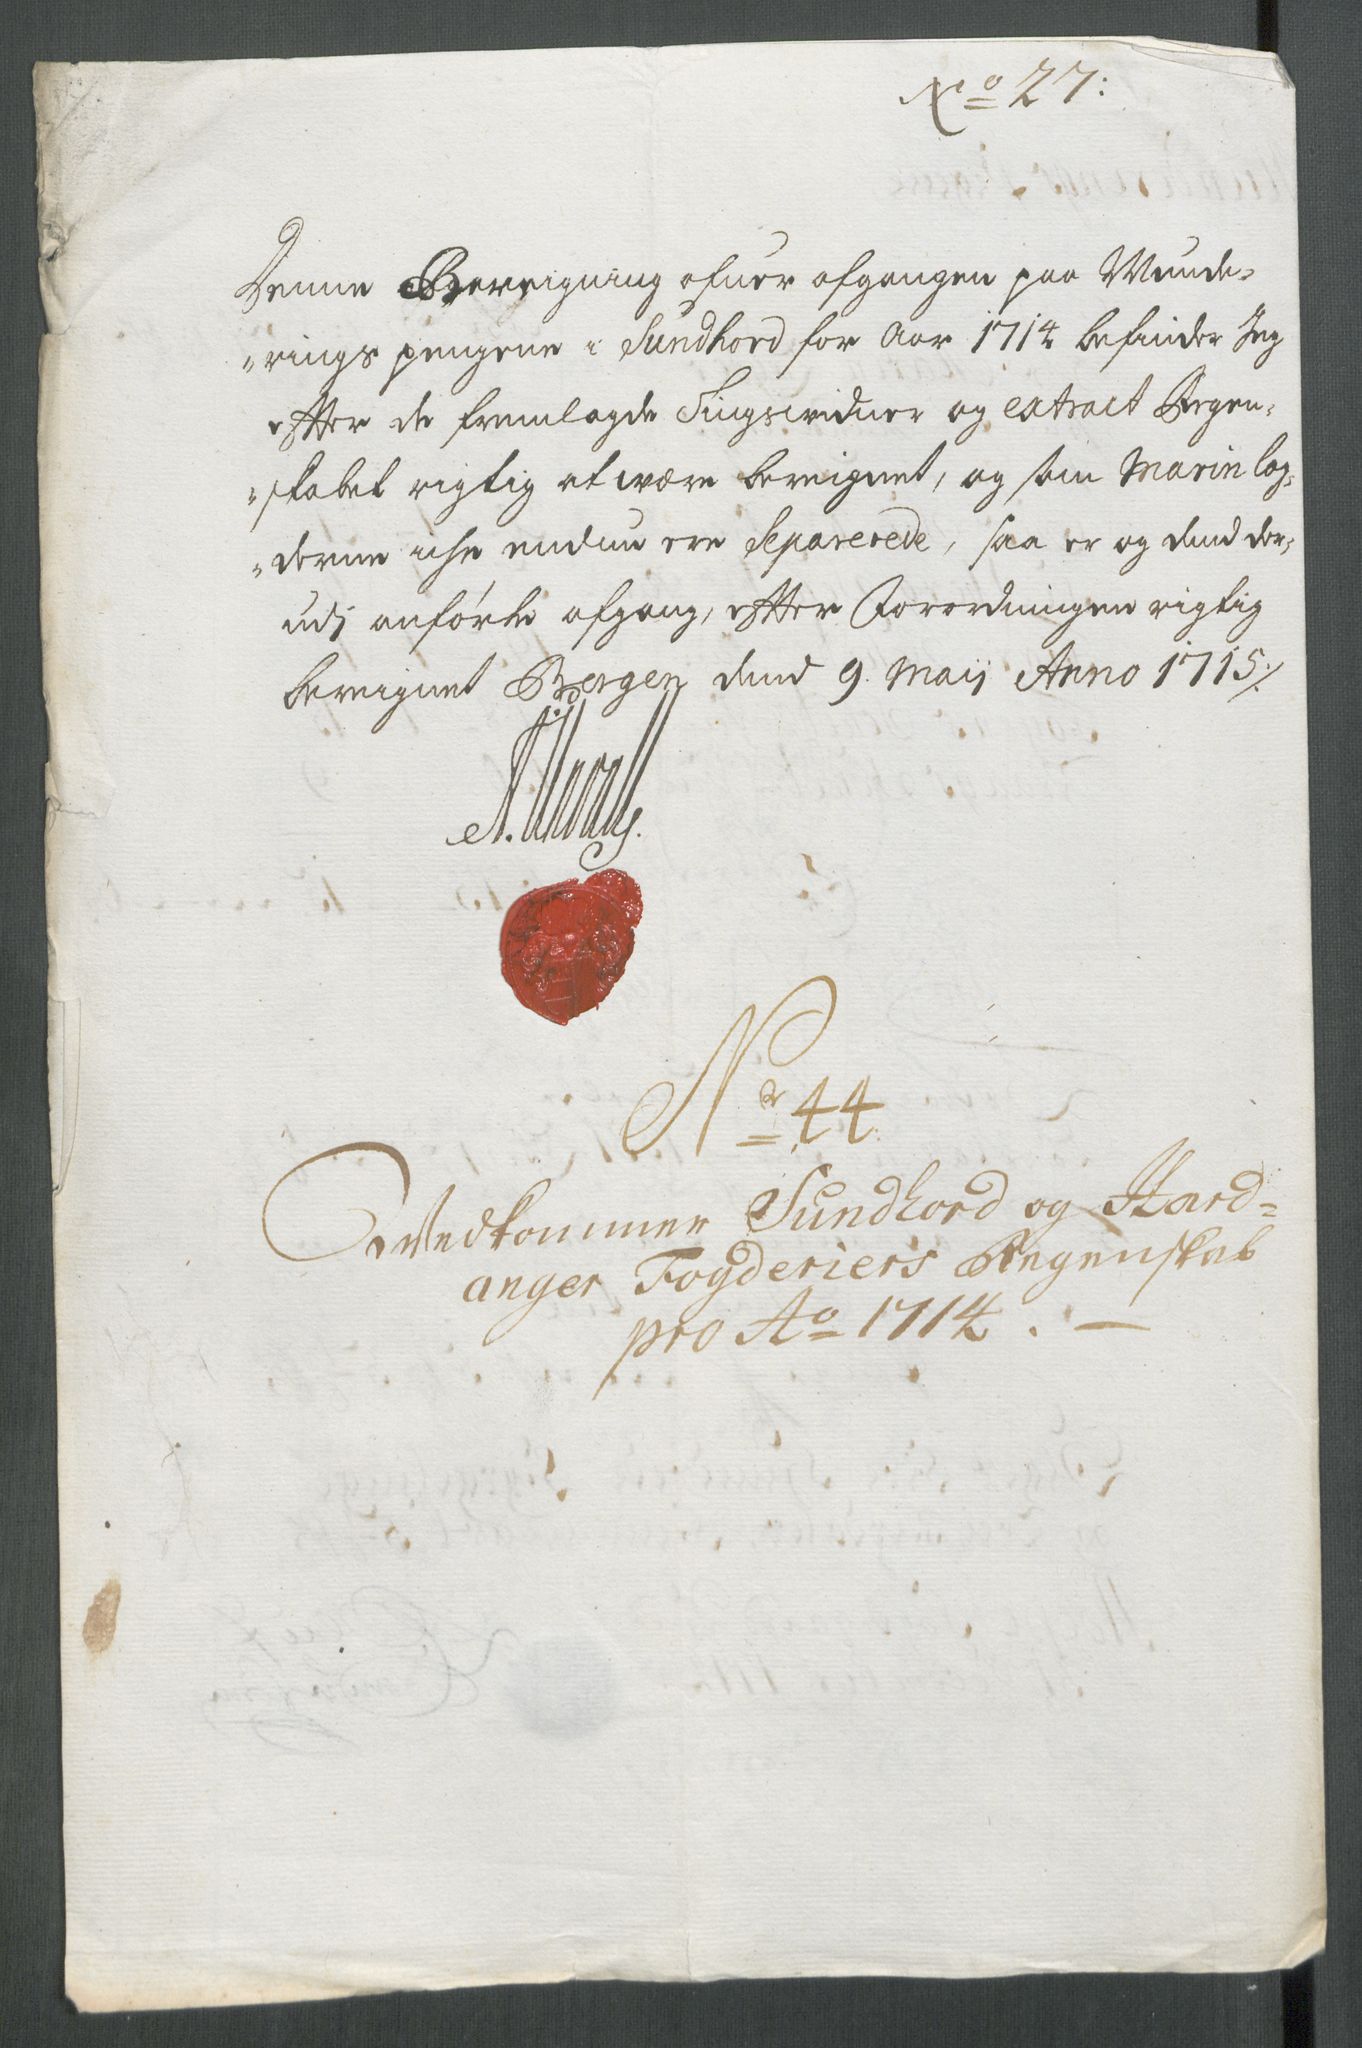 No 27:
Denne Bereigning ofuer afgangen paa Munde-
rings pengene i Sundhord for Aar 1714 befinder Jeg
efter de fremlagde Tingswidner og extract Regen-
skabet rigtig at være bereignet, og som Marin Læg-
derne iche endnu ere Separerede, saa er og dend der-
udj anførte afgang, efter Forordningen rigtig
bereignet Bergen dend 9. Maij Anno 1715 ⁒
Nr 44
Vedkommer Sundhord og Hard-
anger Fogderiers Regenskab
pro Ao 1714. —